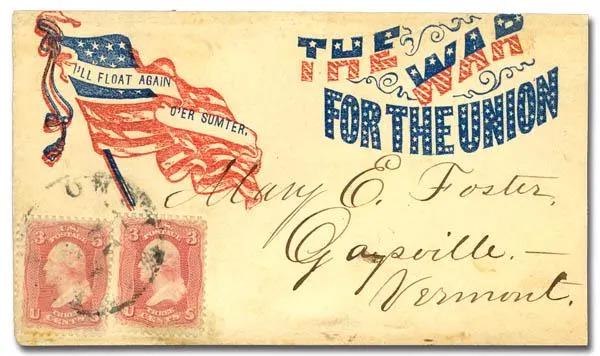 I'LL FLOAT AGAIN
O'ER SUMTER.
THE WAR
FOR THE UNION
Mary E. Foster,
Gaysville. —
Vermont.
3 U.S. 3
POSTAGE
THREE
U CENTS S
3 U.S. 3
POSTAGE
THREE
U CENTS S